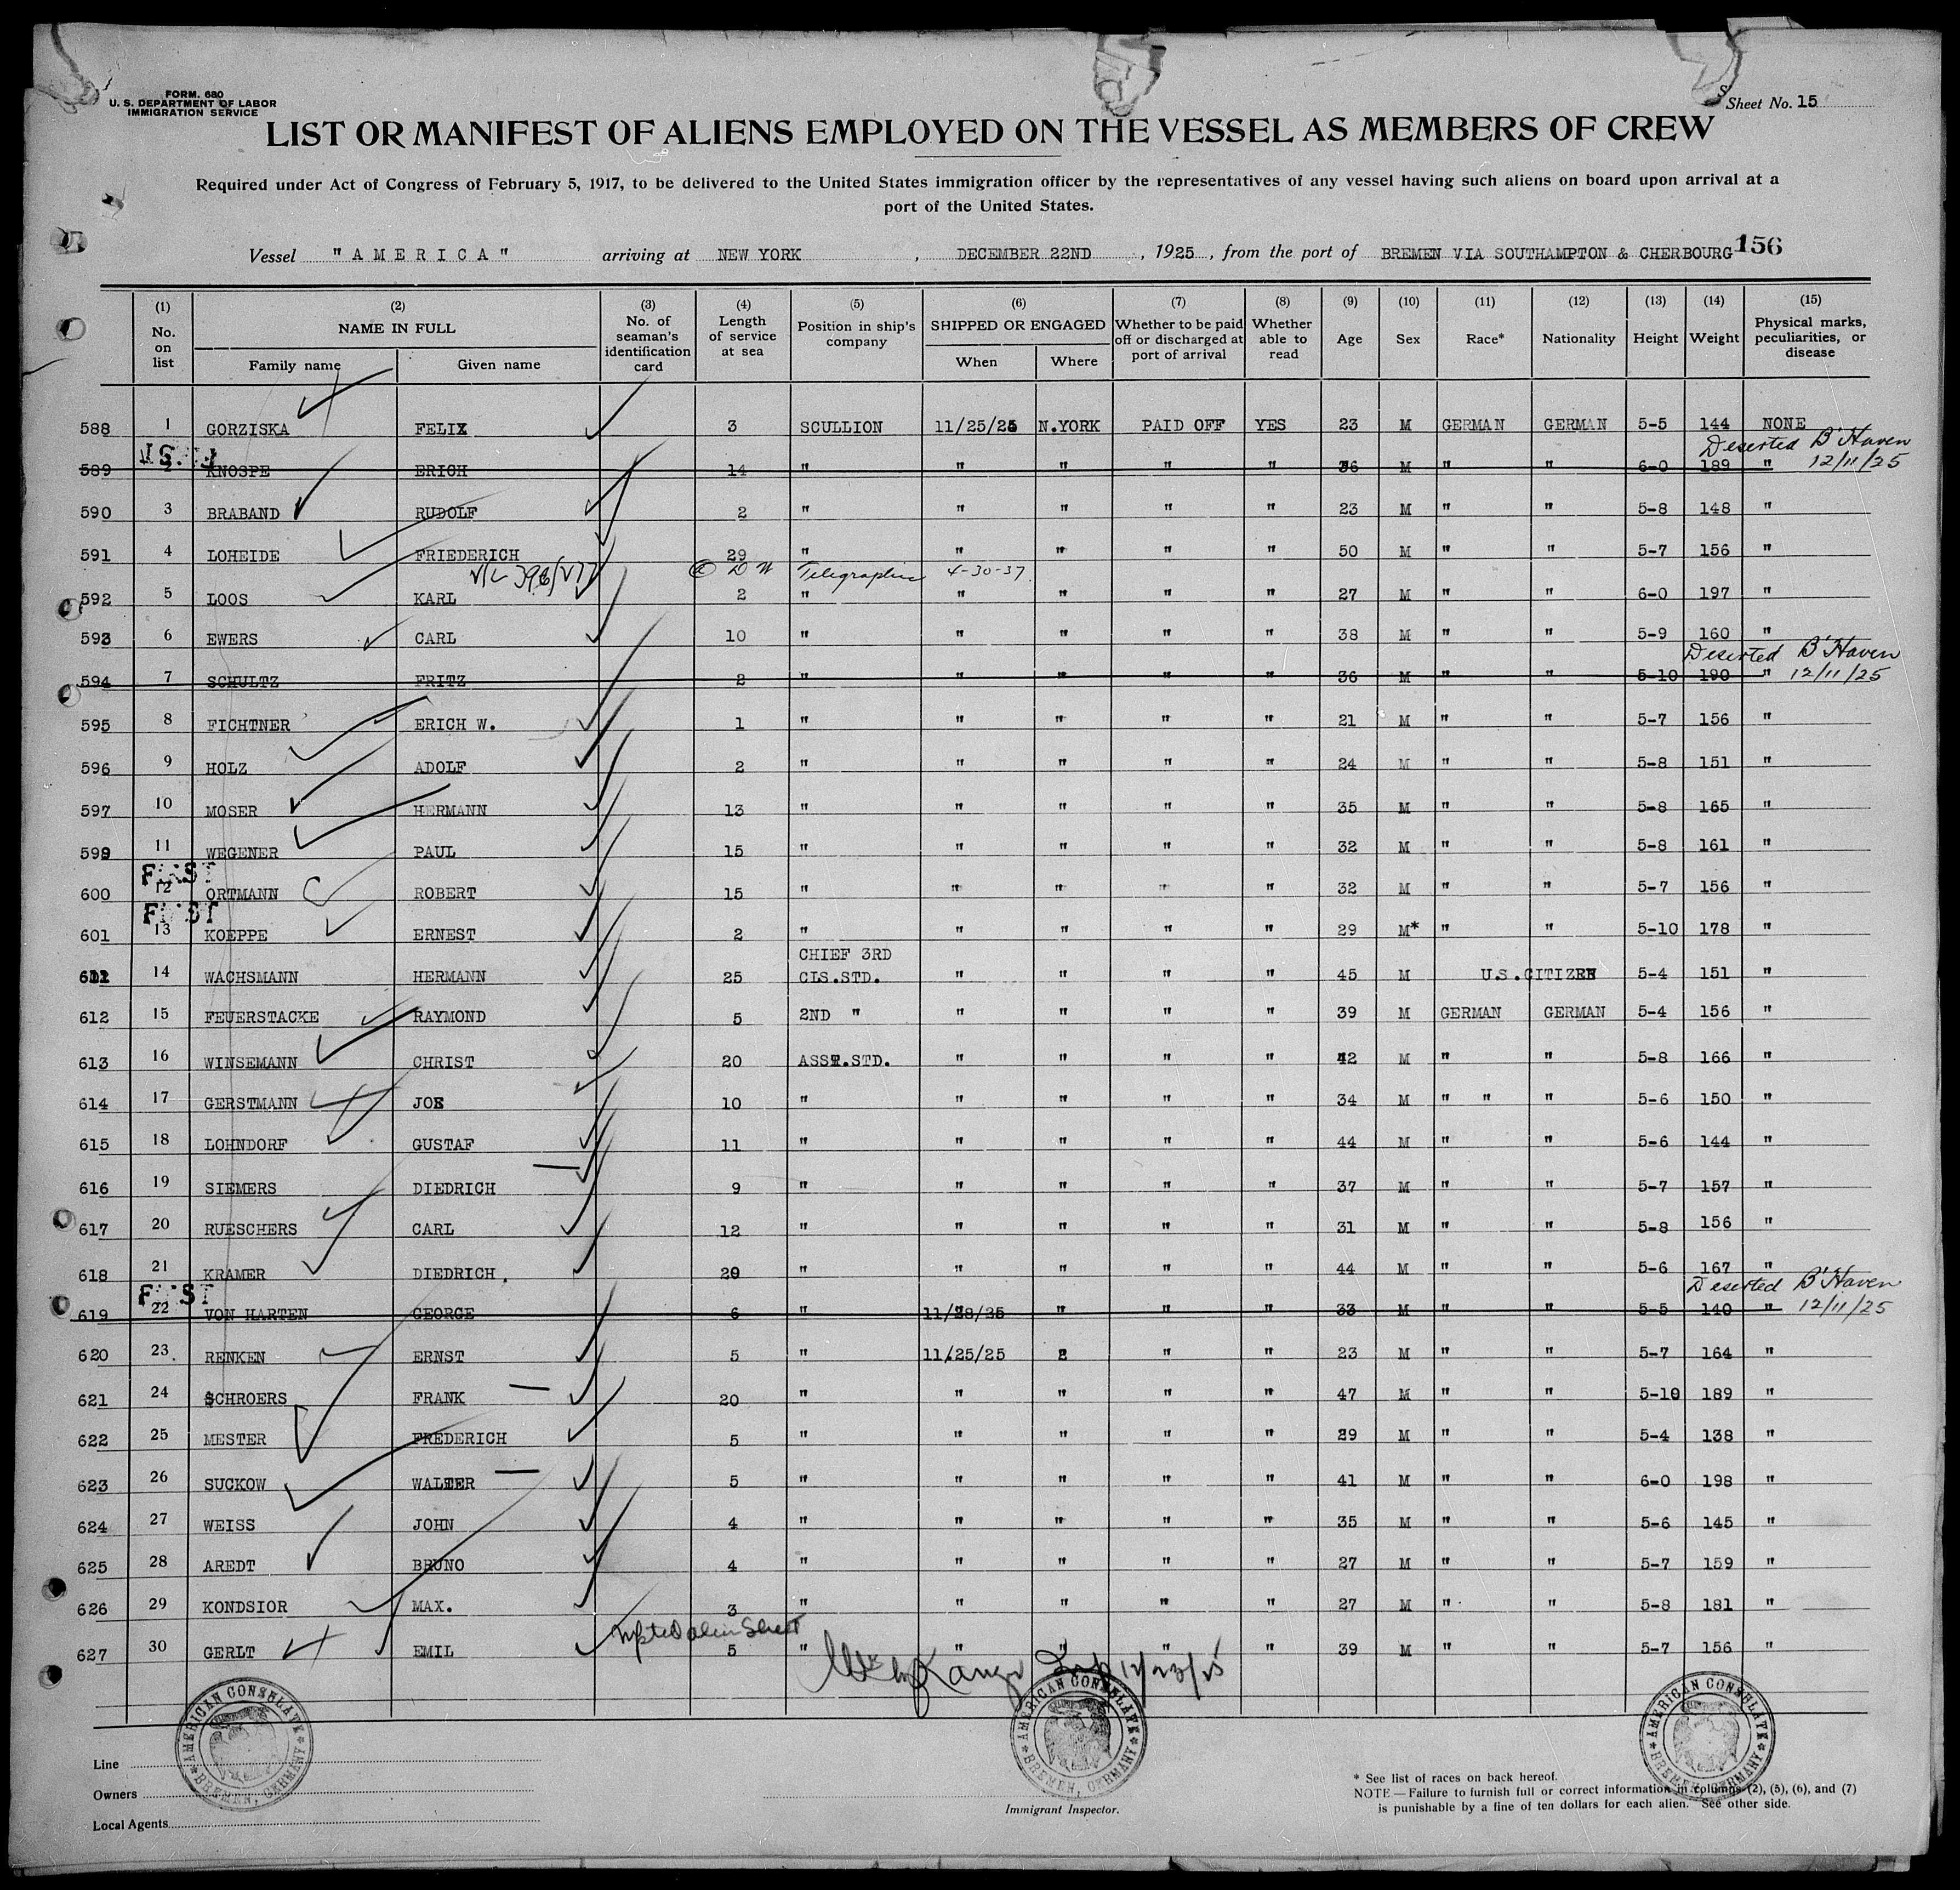 FORM. 680
U. S. DEPARTMENT OF LABOR
IMMIGRATION SERVICE
Sheet No. 15
LIST OR MANIFEST OF ALIENS EMPLOYED ON THE VESSEL AS MEMBERS OF CREW
Required under Act of Congress of February 5, 1917, to be delivered to the United States immigration officer by the representatives of any vessel having such aliens on board upon arrival at a
port of the United States.
Vessel "AMERICA" arriving at NEW YORK , DECEMBER 22ND , 1925 , from the port of BREMEN VIA SOUTHAMPTON & CHERBOURG 156
(1) (2) (3) (4) (5) (6) (7) (8) (9) (10) (11) (12) (13) (14) (15)
No. on list NAME IN FULL Family name Given name No. of seaman's identification card Length of service at sea Position in ship's company SHIPPED OR ENGAGED When Where Whether to be paid off or discharged at port of arrival Whether able to read Age Sex Race* Nationality Height Weight Physical marks, peculiarities, or disease
588 1 GORZISKA FELIX 3 SCULLION 11/25/25 N.YORK PAID OFF YES 23 M GERMAN GERMAN 5-5 144 NONE
Deserted B'Haven
589 2 KNOSPE ERICH 14 " " " " " 36 M " " 6-0 189 " 12/11/25
590 3 BRABAND RUDOLF 2 " " " " " 23 M " " 5-8 148 "
591 4 LOHEIDE FRIEDERICH 29 " " " " " 50 M " " 5-7 156 "
4-30-37
592 5 LOOS KARL 2 " " " " " 27 M " " 6-0 197 "
593 6 EWERS CARL 10 " " " " " 38 M " " 5-9 160 "
Deserted B'Haven
594 7 SCHULTZ FRITZ 2 " " " " " 36 M " " 5-10 190 " 12/11/25
595 8 FICHTNER ERICH W. 1 " " " " " 21 M " " 5-7 156 "
596 9 HOLZ ADOLF 2 " " " " " 24 M " " 5-8 151 "
597 10 MOSER HERMANN 13 " " " " " 35 M " " 5-8 165 "
599 11 WEGENER PAUL 15 " " " " " 32 M " " 5-8 161 "
FIRST
600 12 ORTMANN ROBERT 15 " " " " " 32 M " " 5-7 156 "
FIRST
601 13 KOEPPE ERNEST 2 " " " " " 29 M* " " 5-10 178 "
CHIEF 3RD
611 14 WACHSMANN HERMANN 25 CLS.STD. " " " " 45 M U.S.CITIZEN 5-4 151 "
612 15 FEUERSTACKE RAYMOND 5 2ND " " " " " 39 M GERMAN GERMAN 5-4 156 "
613 16 WINSEMANN CHRIST 20 ASST.STD. " " " " 42 M " " 5-8 166 "
614 17 GERSTMANN JOE 10 " " " " " 34 M " " " 5-6 150 "
615 18 LOHNDORF GUSTAF 11 " " " " " 44 M " " 5-6 144 "
616 19 SIEMERS DIEDRICH 9 " " " " " 37 M " " 5-7 157 "
617 20 RUESCHERS CARL 12 " " " " " 31 M " " 5-8 156 "
618 21 KRAMER DIEDRICH. 20 " " " " " 44 M " " 5-6 167 "
FIRST Deserted B'Haven
619 22 VON HARTEN GEORGE 6 " 11/28/25 " " " 33 M " " 5-5 140 " 12/11/25
620 23. RENKEN ERNST 5 " 11/25/25 " " " 23 M " " 5-7 164 "
621 24 SCHROERS FRANK 20 " " " " " 47 M " " 5-10 189 "
622 25 MESTER FREDERICH 5 " " " " " 29 M " " 5-4 138 "
623 26 SUCKOW WALTER 5 " " " " " 41 M " " 6-0 198 "
624 27 WEISS JOHN 4 " " " " " 35 M " " 5-6 145 "
625 28 AREDT BRUNO 4 " " " " " 27 M " " 5-7 159 "
626 29 KONDSIOR MAX. 3 " " " " " 27 M " " 5-8 181 "
627 30 GERLT EMIL 5 " " " " " 39 M " " 5-7 156 "
12/23/25
AMERICAN CONSULATE BREMEN, GERMANY
AMERICAN CONSULATE BREMEN, GERMANY
AMERICAN CONSULATE BREMEN, GERMANY
Line
Owners
Local Agents
Immigrant Inspector.
* See list of races on back hereof.
NOTE—Failure to furnish full or correct information in columns (2), (5), (6), and (7)
is punishable by a fine of ten dollars for each alien. See other side.